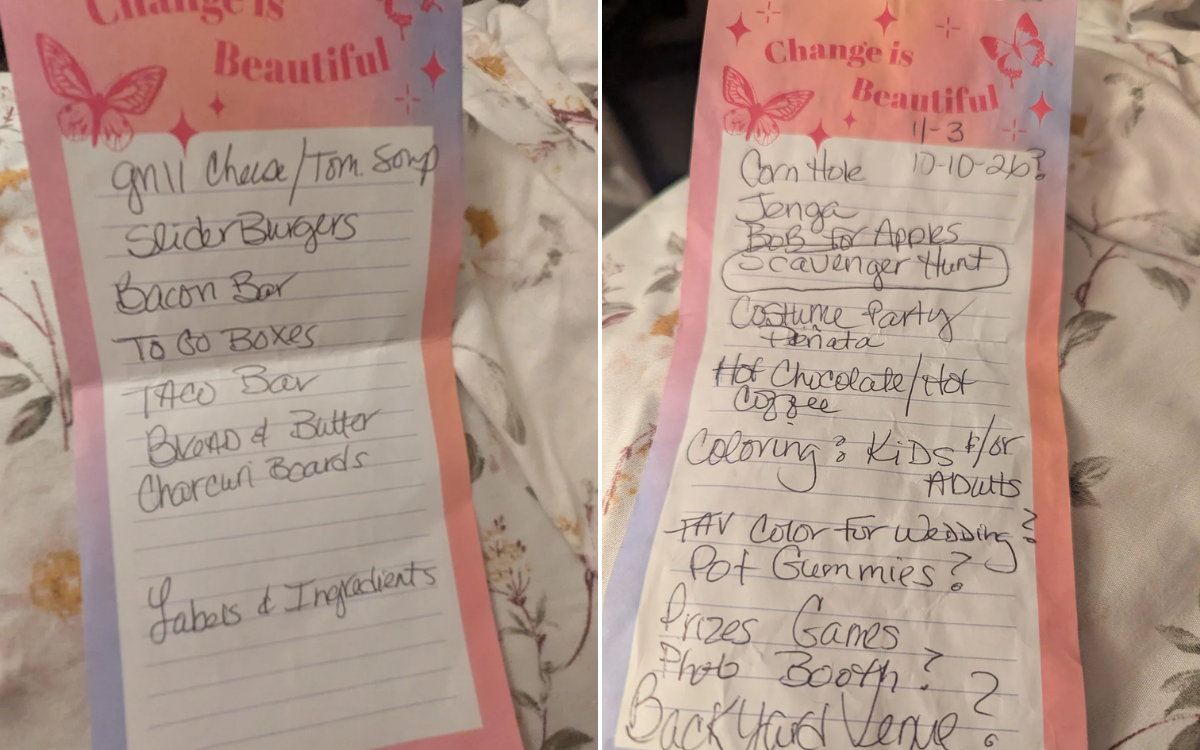 Change is
Beautiful
grill Cheese/Tom. Soup
Slider Burgers
Bacon Bar
To Go Boxes
TACO Bar
BreAD & Butter
Charcuri Boards
Labels & Ingredients
Change is
Beautiful
11-3
Corn Hole 10-10-26?
Jenga
BoB for Apples
Scavenger Hunt
Costume Party
Piñata
Hot Chocolate/Hot
Coffee
Coloring? KiDS &/or
ADults
FAV Color for WeDDing?
Pot Gummies?
Prizes Games
Photo Booth?
BackYard Venue?